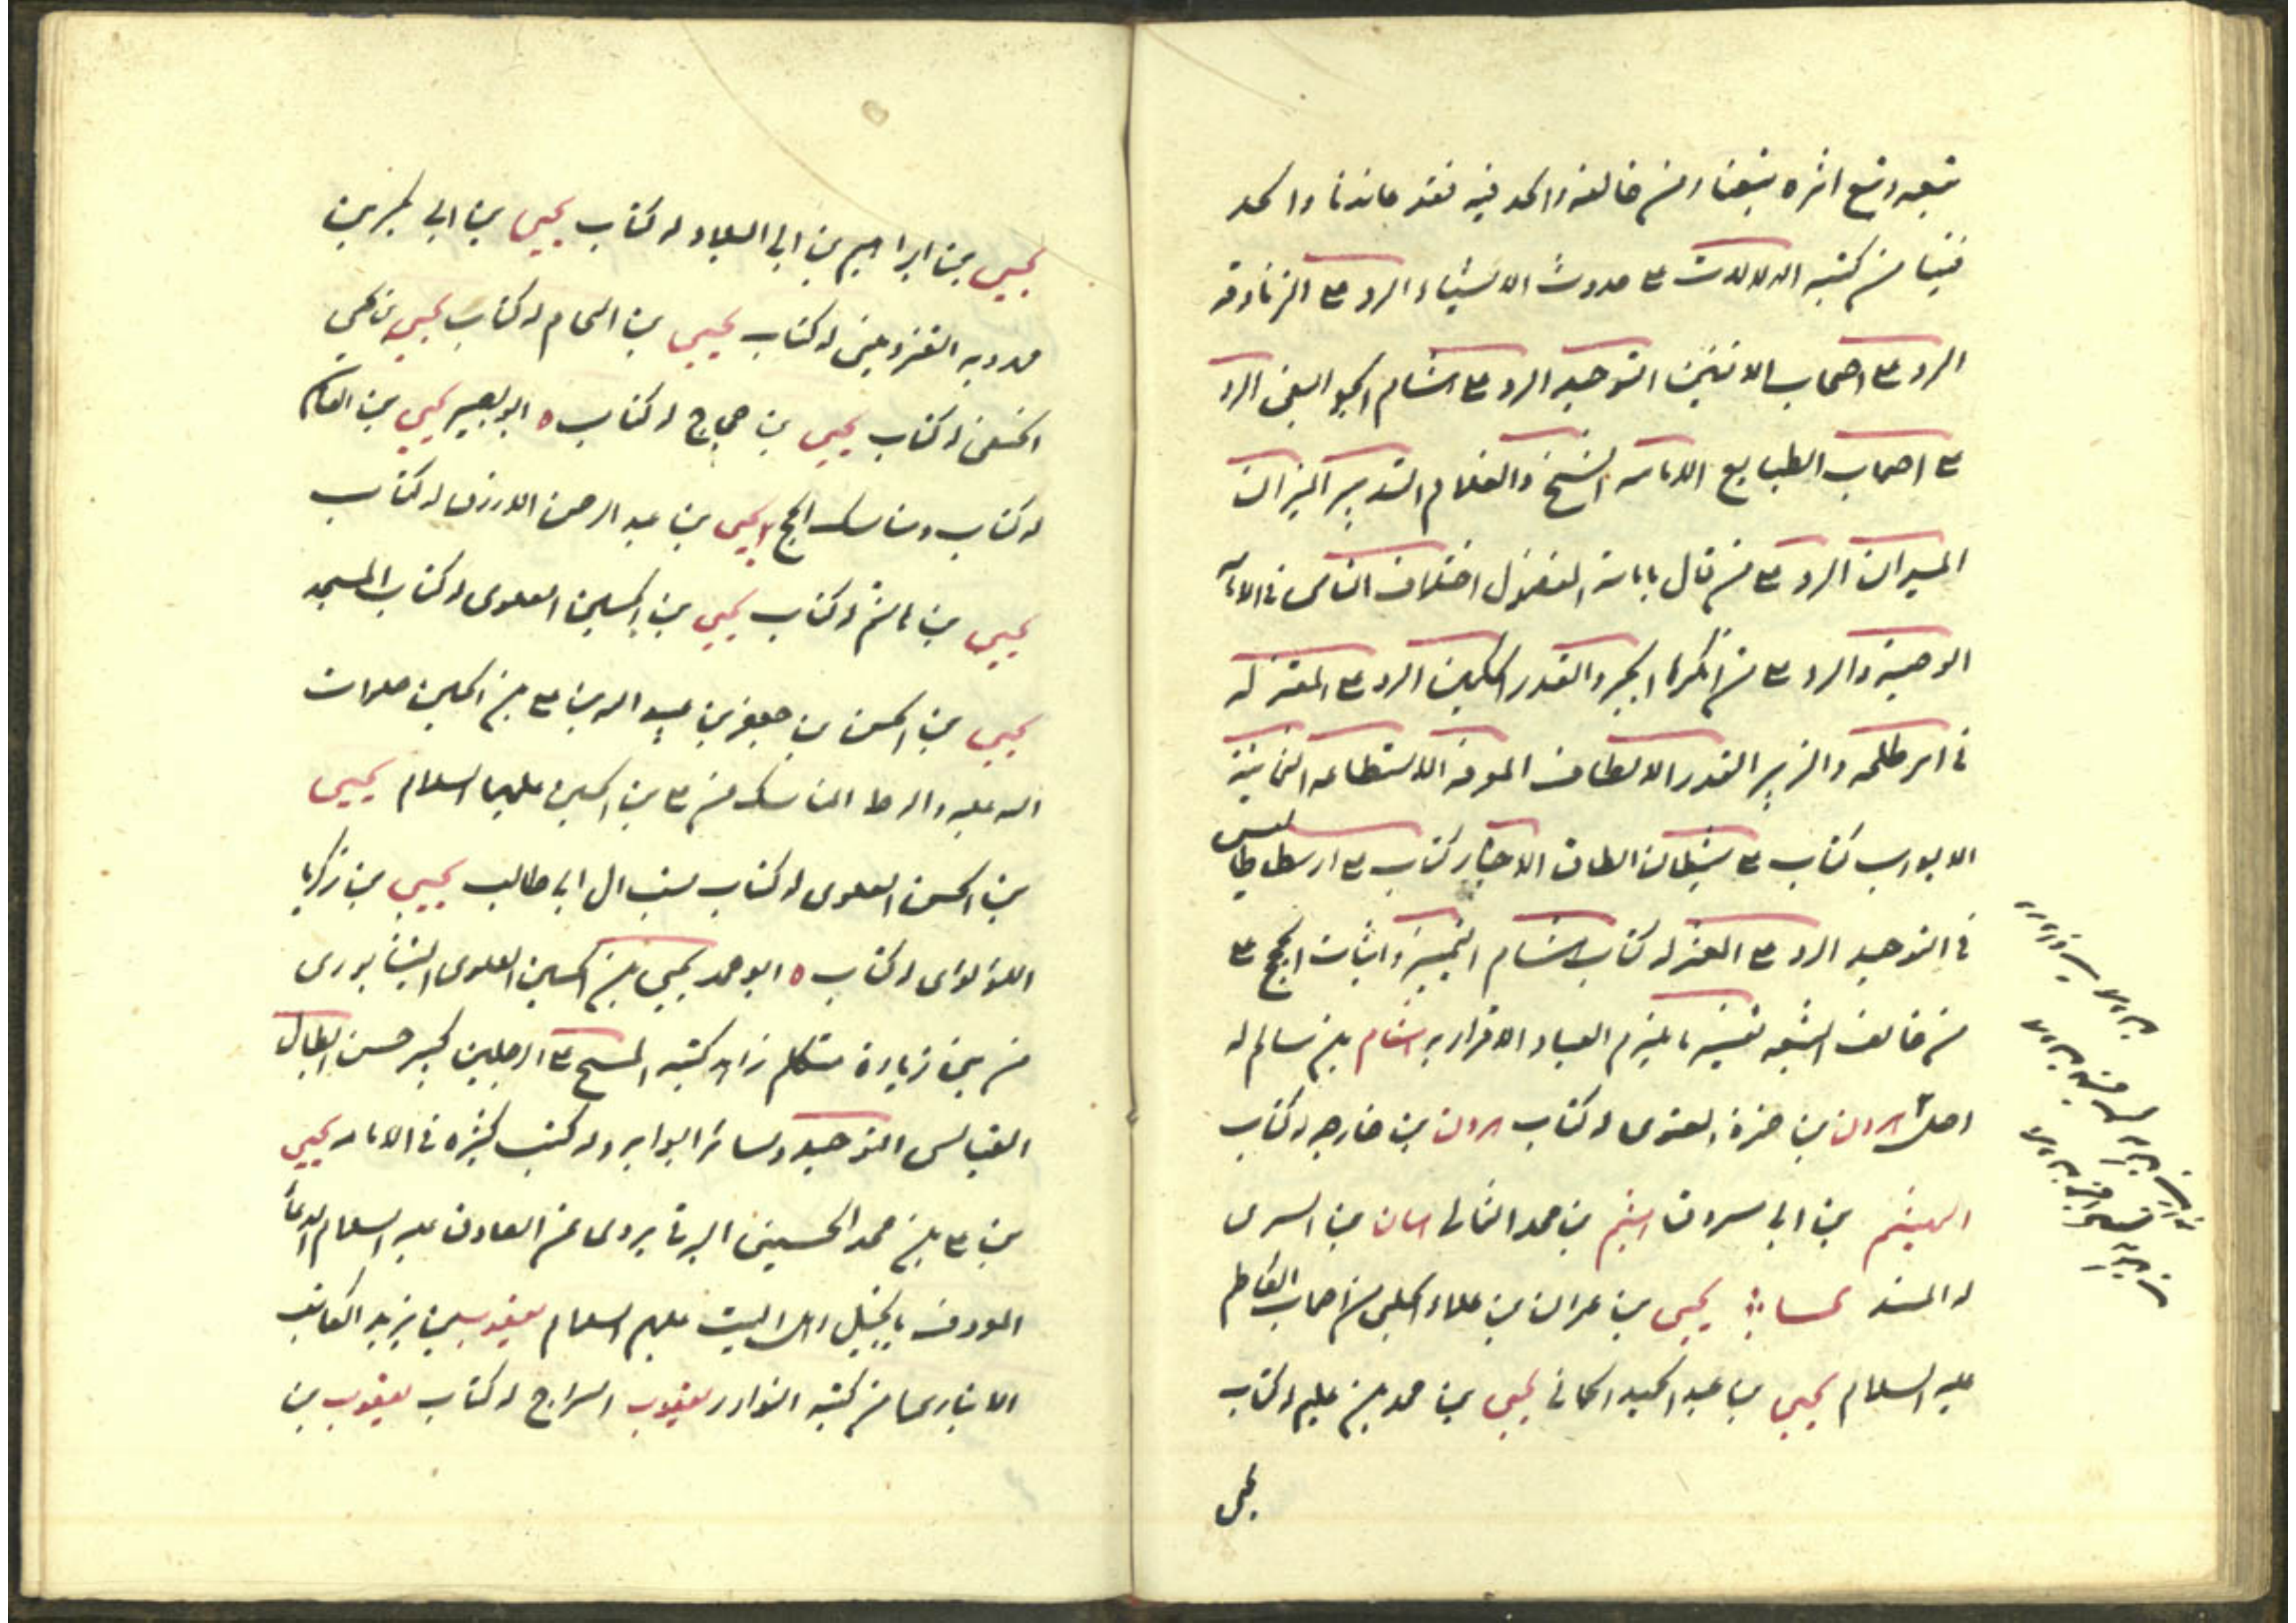 تبعه وتبع اثره تبعنا ومن خالفه والحد فيه فقد عاندنا والحد
فينا من كتبه الدلالات ع حدوث الاشياء الرد ع الزنادقه
الرد ع اصحاب الاثنين التوحيد الرد ع هشام الجواليقى الرد
ع اصحاب الطبايع الامامه الشيخ والغلام التدبير الميزان
الميدان الرد ع من قال بامامة المفضول اختلاف الناس فى الامامه
الوصية والرد ع من انكرها الجبر والقدر الحكمين الرد ع المعتزله
فى امر طلحه والزبير القدر الالطاف المعرفه الاستطاعه الثمانية
الابواب كتاب ع شيطان الطاق الاخبار كتاب ع ارسطاطاليس
فى التوحيد الرد ع المعتزله كتاب هشام التمييز واثبات الحجج ع
من خالف الشيعه تفسير ما يلزم العباد الاقرار به هشام بن سالم له
اصل هرون بن حمزة الغنوى له كتاب هرون بن خارجه له كتاب
الهيثم بن ابى مسروق هيثم بن محمد الثمالى بن السرى
له المسند يحيى بن عمران بن على الحلبى من اصحاب الكاظم
عليه السلام يحيى بن عبد الحميد الحمانى يحيى بن محمد بن عليم له كتاب
يحيى
يحيى بن ابراهيم بن ابى البلاد له كتاب يحيى بن ابى بكر بن
مهرويه القزوينى له كتاب يحيى بن اللحام له كتاب يحيى بن
الخثعمى له كتاب يحيى بن حجاج له كتاب ه ابو بصير يحيى بن القاسم
له كتاب مناسك الحج يحيى بن عبد الرحمن الازرق له كتاب
يحيى بن هاشم له كتاب يحيى بن الحسين العلوى له كتاب المسجد
يحيى بن الحسن بن جعفر بن عبيد الله بن ع بن الحسين صلوات
الله عليه واله المناسك عن ع بن الحسين عليهما السلام يحيى
بن الحسن العلوى له كتاب نسب ال ابى طالب يحيى بن زكريا
اللؤلؤاى له كتاب ه ابو محمد يحيى بن الحسين العلوى النيشابورى
من بنى زيارة متكلم زاهد كتبه المسح ع الرجلين كبير حسن ابطال
القياس التوحيد وسائر ابوابه وله كتب كثيره فى الامامه يحيى
بن ع بن محمد الحسينى الرقى يروى عن الصادق عليه السلام الدعا
المعروف بانجيل اهل البيت عليهم السلام يعقوب بن يزيد الكاتب
الانبارى من كتبه النوادر يعقوب السراج له كتاب يعقوب بن